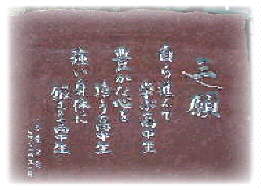 三願
自ら進んで
学ぶ高中生
豊かな心を
培う高中生
強い身体に
鍛える高中生